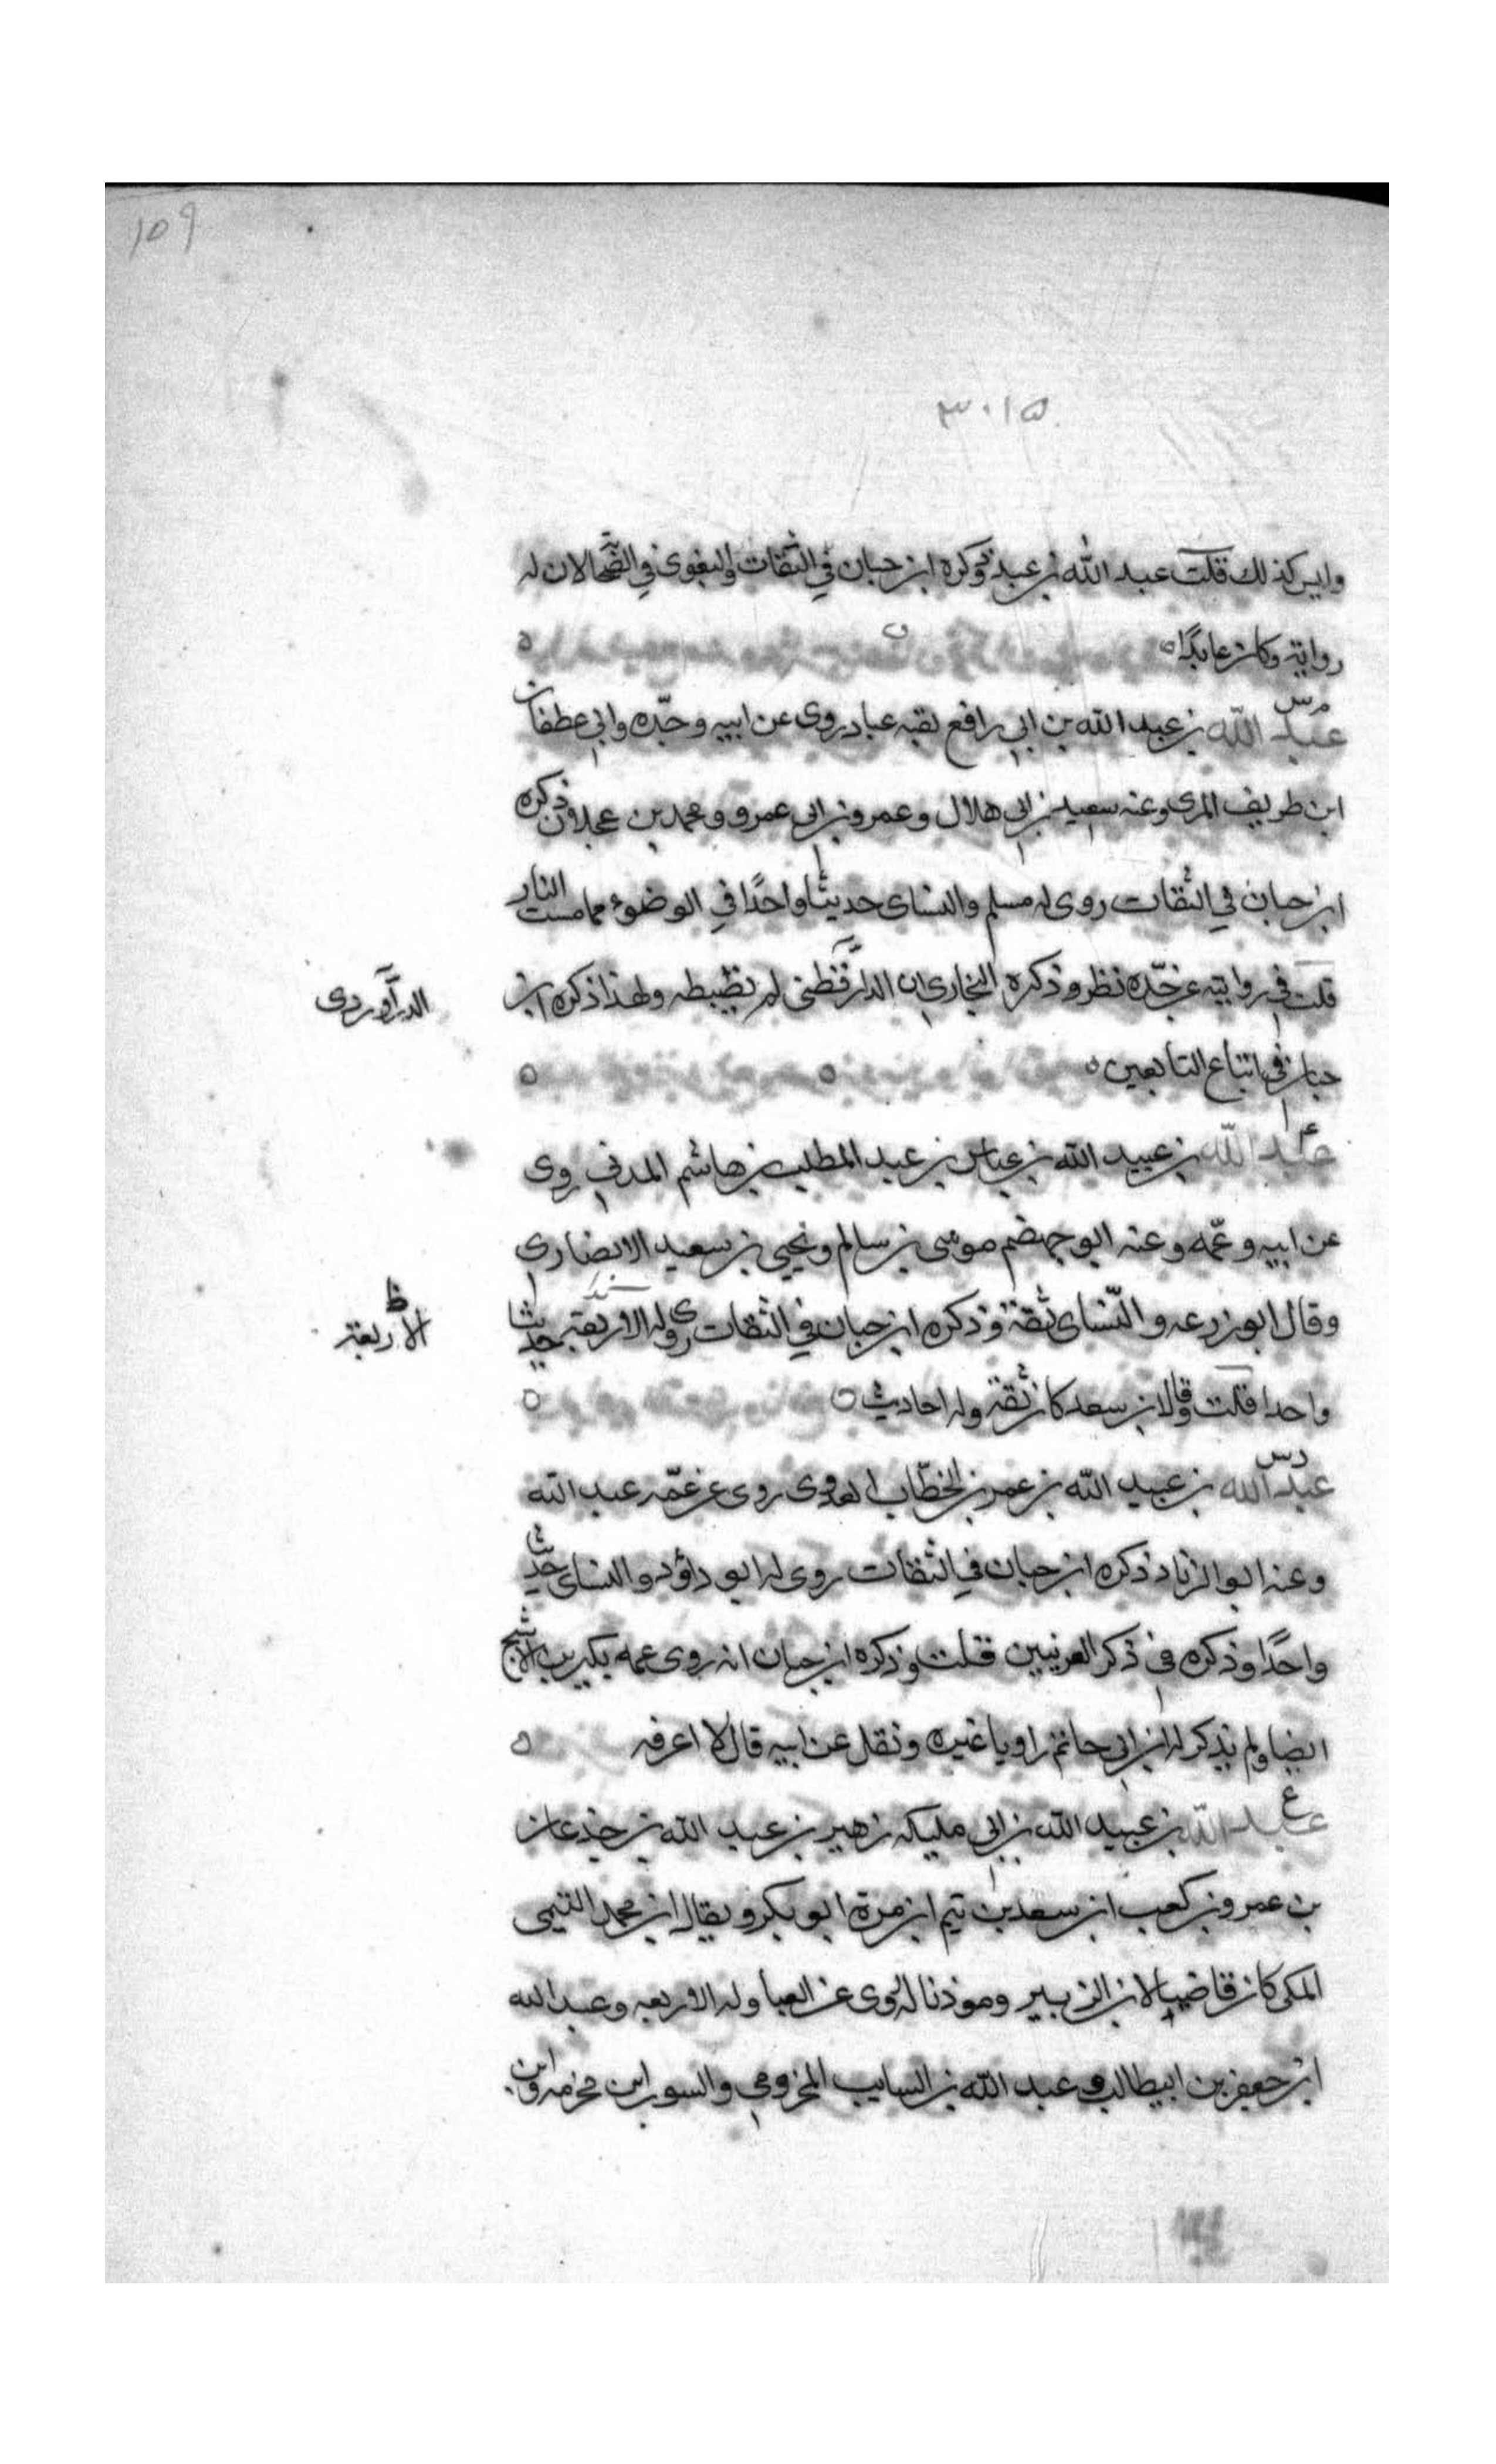 ١٥٩
٣٠١٥
وليس كذلك قلت عبد الله بن عبد ذكره ابن حبان في الثقات والبغوي في الصحابة لان له
رواية وكان عابدًا
م س
عبد الله بن عبيد الله بن ابي رافع لقبه عباد روى عن ابيه وجده وابي غطفان
ابن طريف المري وعنه سعيد بن ابي هلال وعمرو بن ابي عمرو ومحمد بن عجلان ذكره
ابن حبان في الثقات روى له مسلم والنسائ حديثًا واحدًا في الوضوء مما مست النار
قلت في روايته عن جده نظر وذكره البخاري ان الدارقطني لم يظبطه ولهذا ذكره ابن
الدرآوردى
حبان في اتباع التابعين
٤
عبد الله بن عبيد الله بن عباس بن عبد المطلب بن هاشم المدني روى
عن ابيه وعمه وعنه ابو جهضم موسى بن سالم ويحيى بن سعيد الانصارى
وقال ابو زرعه والنسائ ثقة وذكره ابن حبان في الثقات روى له الاربعة حديثا
ظ
الاربعة
واحدا قلت وقال ابن سعد كان ثقة وله احاديث
د س
عبد الله بن عبيد الله بن عمر بن الخطاب العدوى روى عن عمه عبد الله
وعنه ابو الزناد ذكره ابن حبان في الثقات روى له ابو داود والنسائ حديثا
واحدًا وذكره في ذكر العرنيين قلت وذكره ابن حبان انه روى عمه بكير بن الاشج
ايضا ولم يذكر له ابن ابي حاتم راويا غيره ونقل عن ابيه قال لا اعرفه
ع
عبد الله بن عبيد الله بن ابي مليكه زهير بن عبد الله بن جدعان
بن عمرو بن كعب ابن سعد بن تيم ابن مرة ابو بكر ويقال ابن محمد التيمى
المكى كان قاضيا لابن الزبير وموذنا له روى عن العبادله الاربعه وعبد الله
ابن جعفر بن ابيطالب وعبد الله بن السايب المخزومي والسور ابن مخرمه وابن